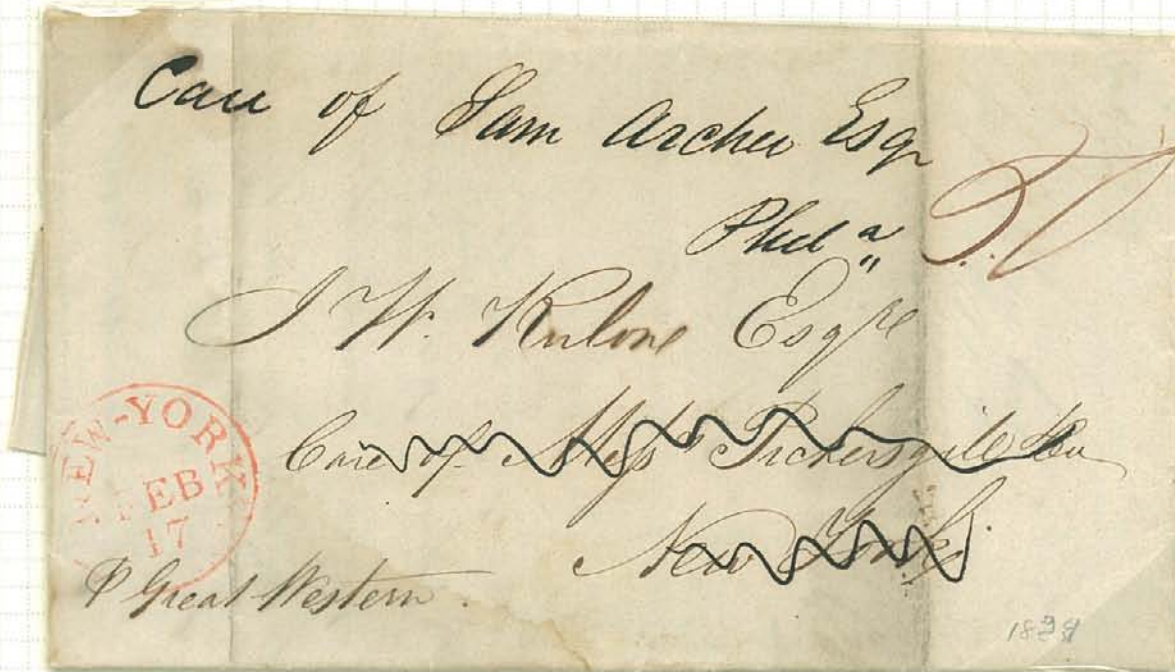 Care of Sam Archer Esqr
Phil a "
J W. Esqre
Care of Messrs Pickersgill & Co
New York
NEW-YORK
FEB
17
P Great Western.